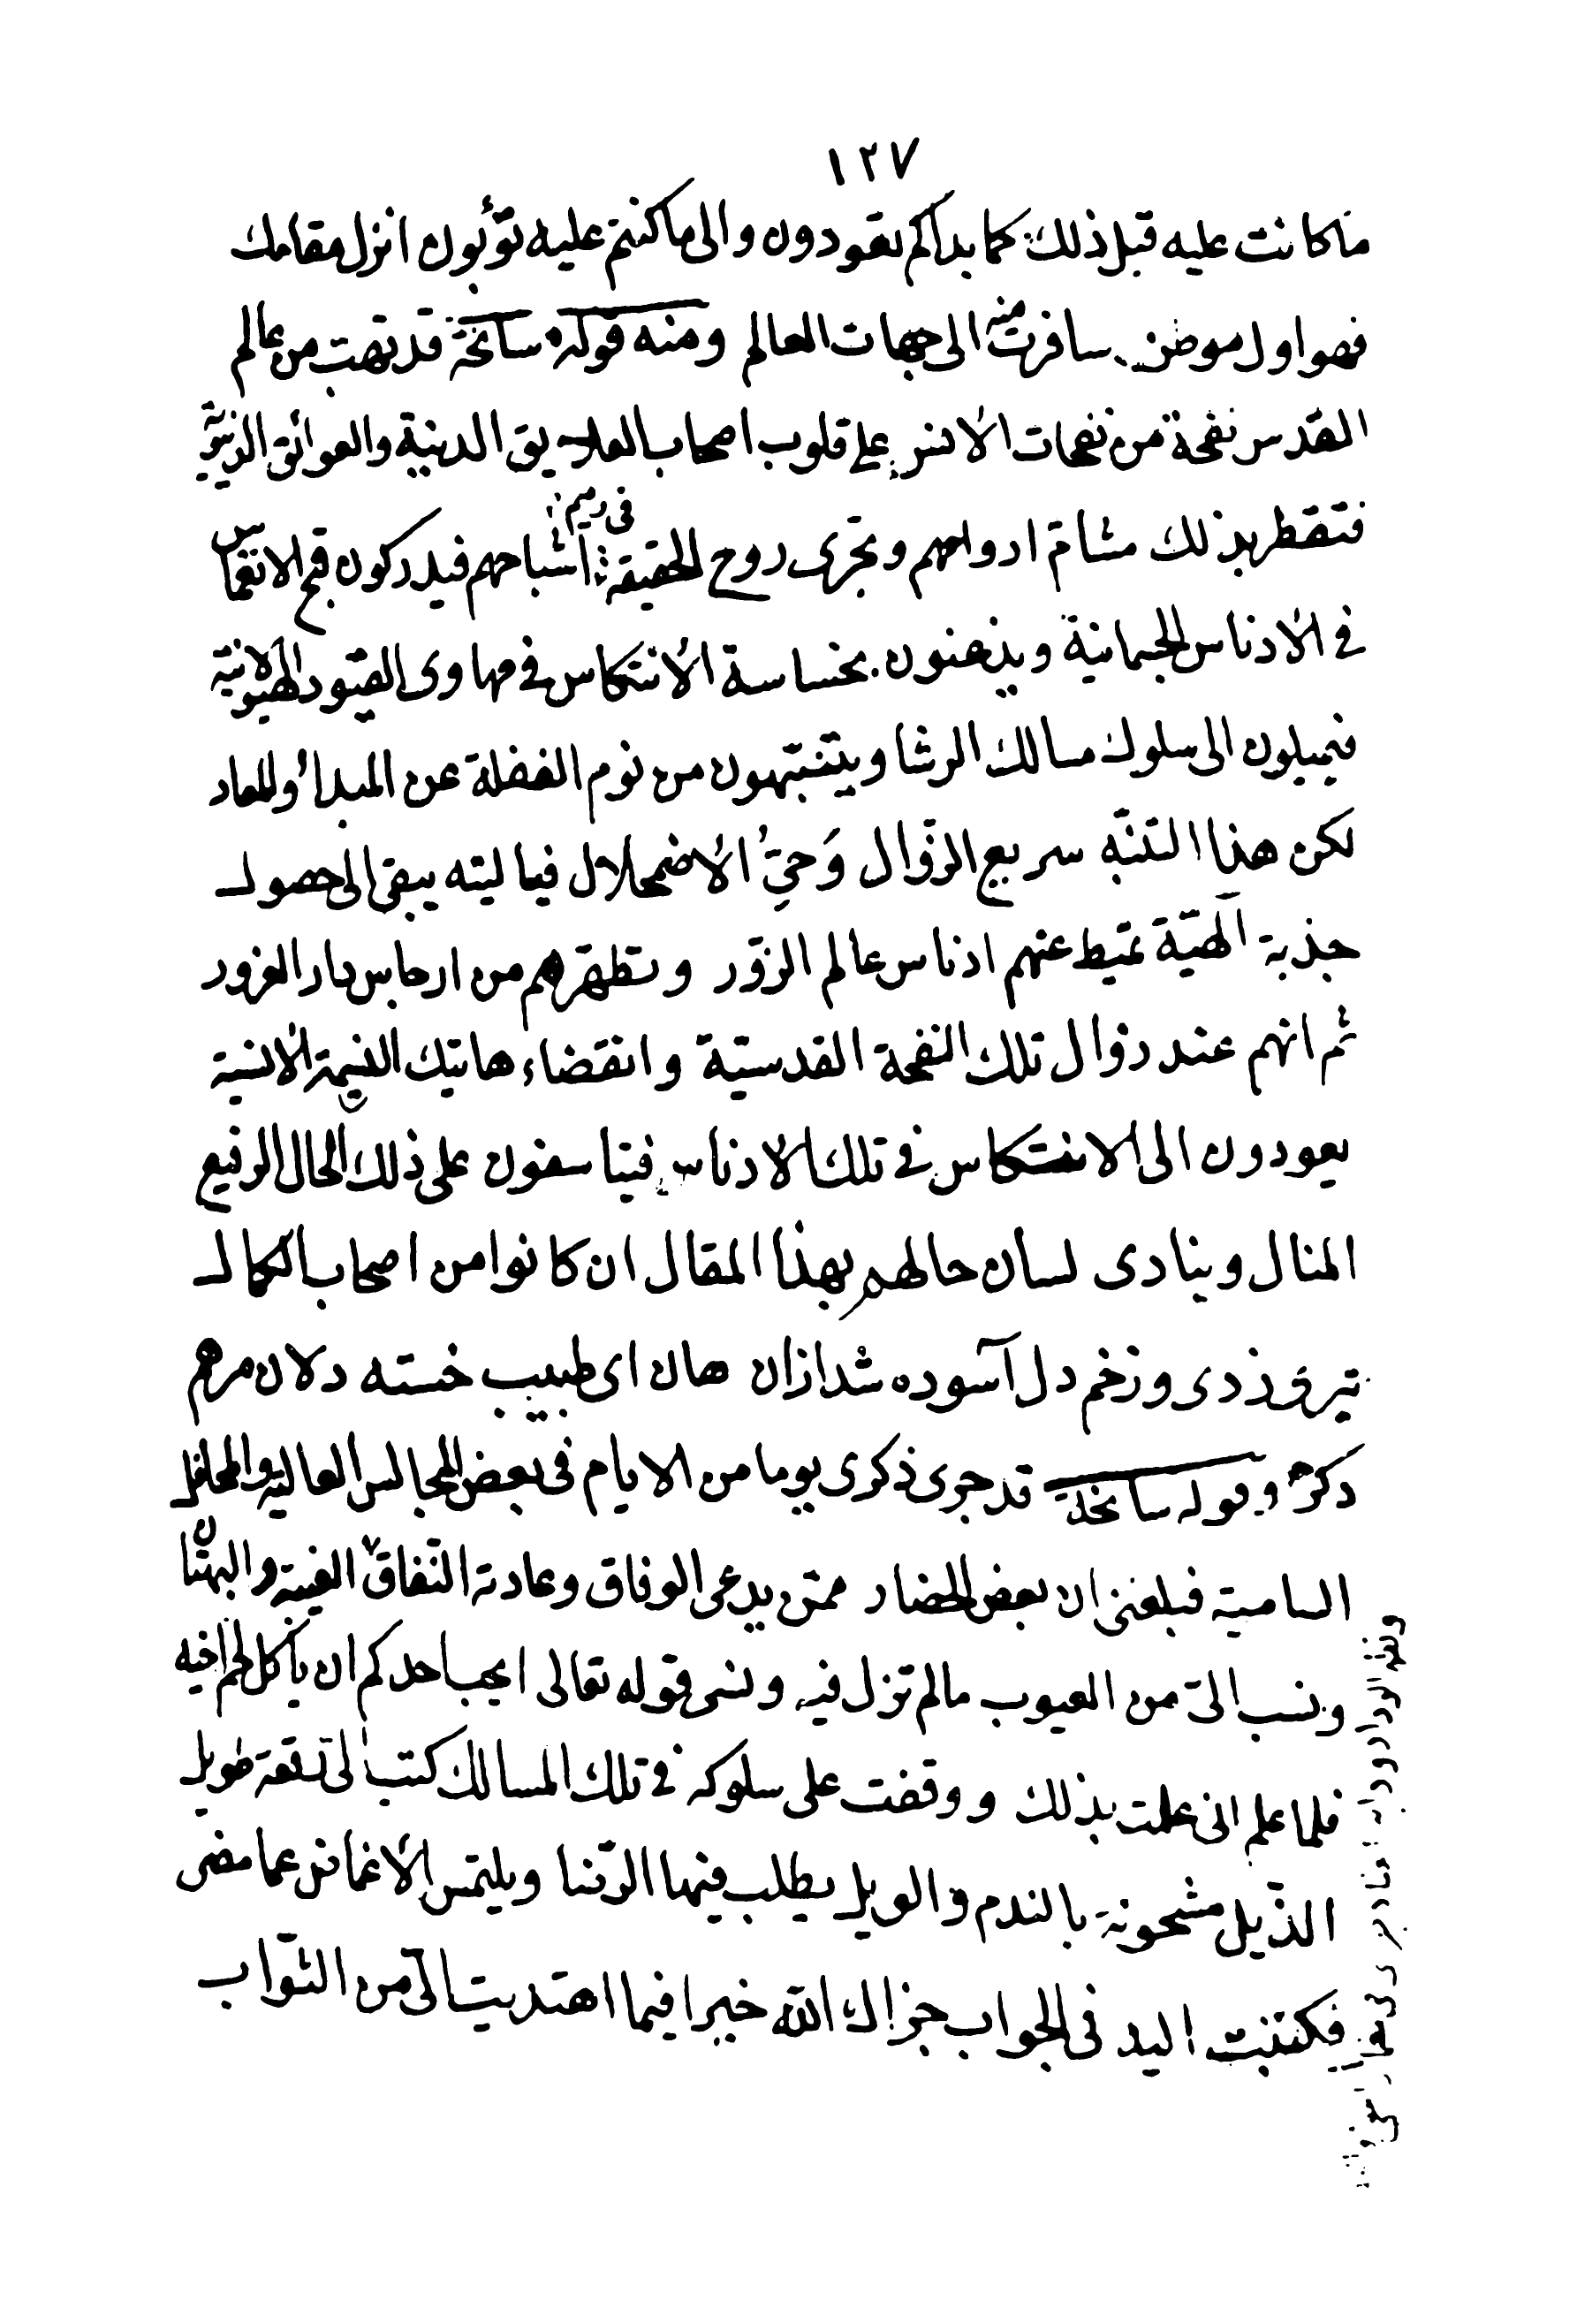 ١٢٧
ما كانت عليه قبل ذلك كما بداكم تعودون والى ما كنتم عليه تؤبون انزل مقامك
فهو اول موطن سافرت منه الى جهات العالم ومنه قوله سانحة قد تهب من عالم
القدس نفحة من نفحات الانس على قلوب اصحاب العلايق الدنية والعوائق الدنيوية
فتقطر بذلك مشام ارواحهم وتجرى روح الحقيقة فى رميم اشباحهم فيدركون قبح الانغماس
فى الادناس الجسمانية ويذعنون بخساسة الانتكاس فى مهاوى القيود الهيولانية
فيميلون الى سلوك مسالك الرشا ويتنبهون من نوم الغفلة عن المبدأ والمعاد
لكن هذا التنبه سريع الزوال وَحِىُّ الاضمحلال فيا ليته يبقى الى حصول
جذبة الهيّة تميط عنهم ادناس عالم الزور وتطهرهم من ارجاس دار الغرور
ثم انهم عند زوال تلك النفحة القدسيّة وانقضاء هاتيك النسيمة الانسية
يعودون الى الانتكاس فى تلك الادناس فيتاسفون على ذلك الحال الرفيع
المنال وينادى لسان حالهم بهذا المقال ان كانوا من اصحاب الكمال
تيرى زدى و زخم دل آسوده شد ازان هان اى طبيب خسته دلان مرهم
دكر وقوله سانحة قد جرى ذكرى يوما من الايام فى بعض المجالس العالية والمحافل
السامية فبلغنى ان بعض الحضار ممن يدعى الوفاق وعادته النفاق الغيبة والبهتان
ونسب الىّ من العيوب ما لم تزل فيه ونسى قوله تعالى ايحب احدكم ان يأكل لحم اخيه
فلما علم انى علمت بذلك ووقفت على سلوكه فى تلك المسالك كتب الىّ رقعة طويل
الذيل مشحونة بالندم والويل يطلب فيها الرّضا ويلتمس الاغماض عما مضى
فكتبت اليه فى الجواب جزاك الله خيرا فيما اهتديت الىّ من الثواب